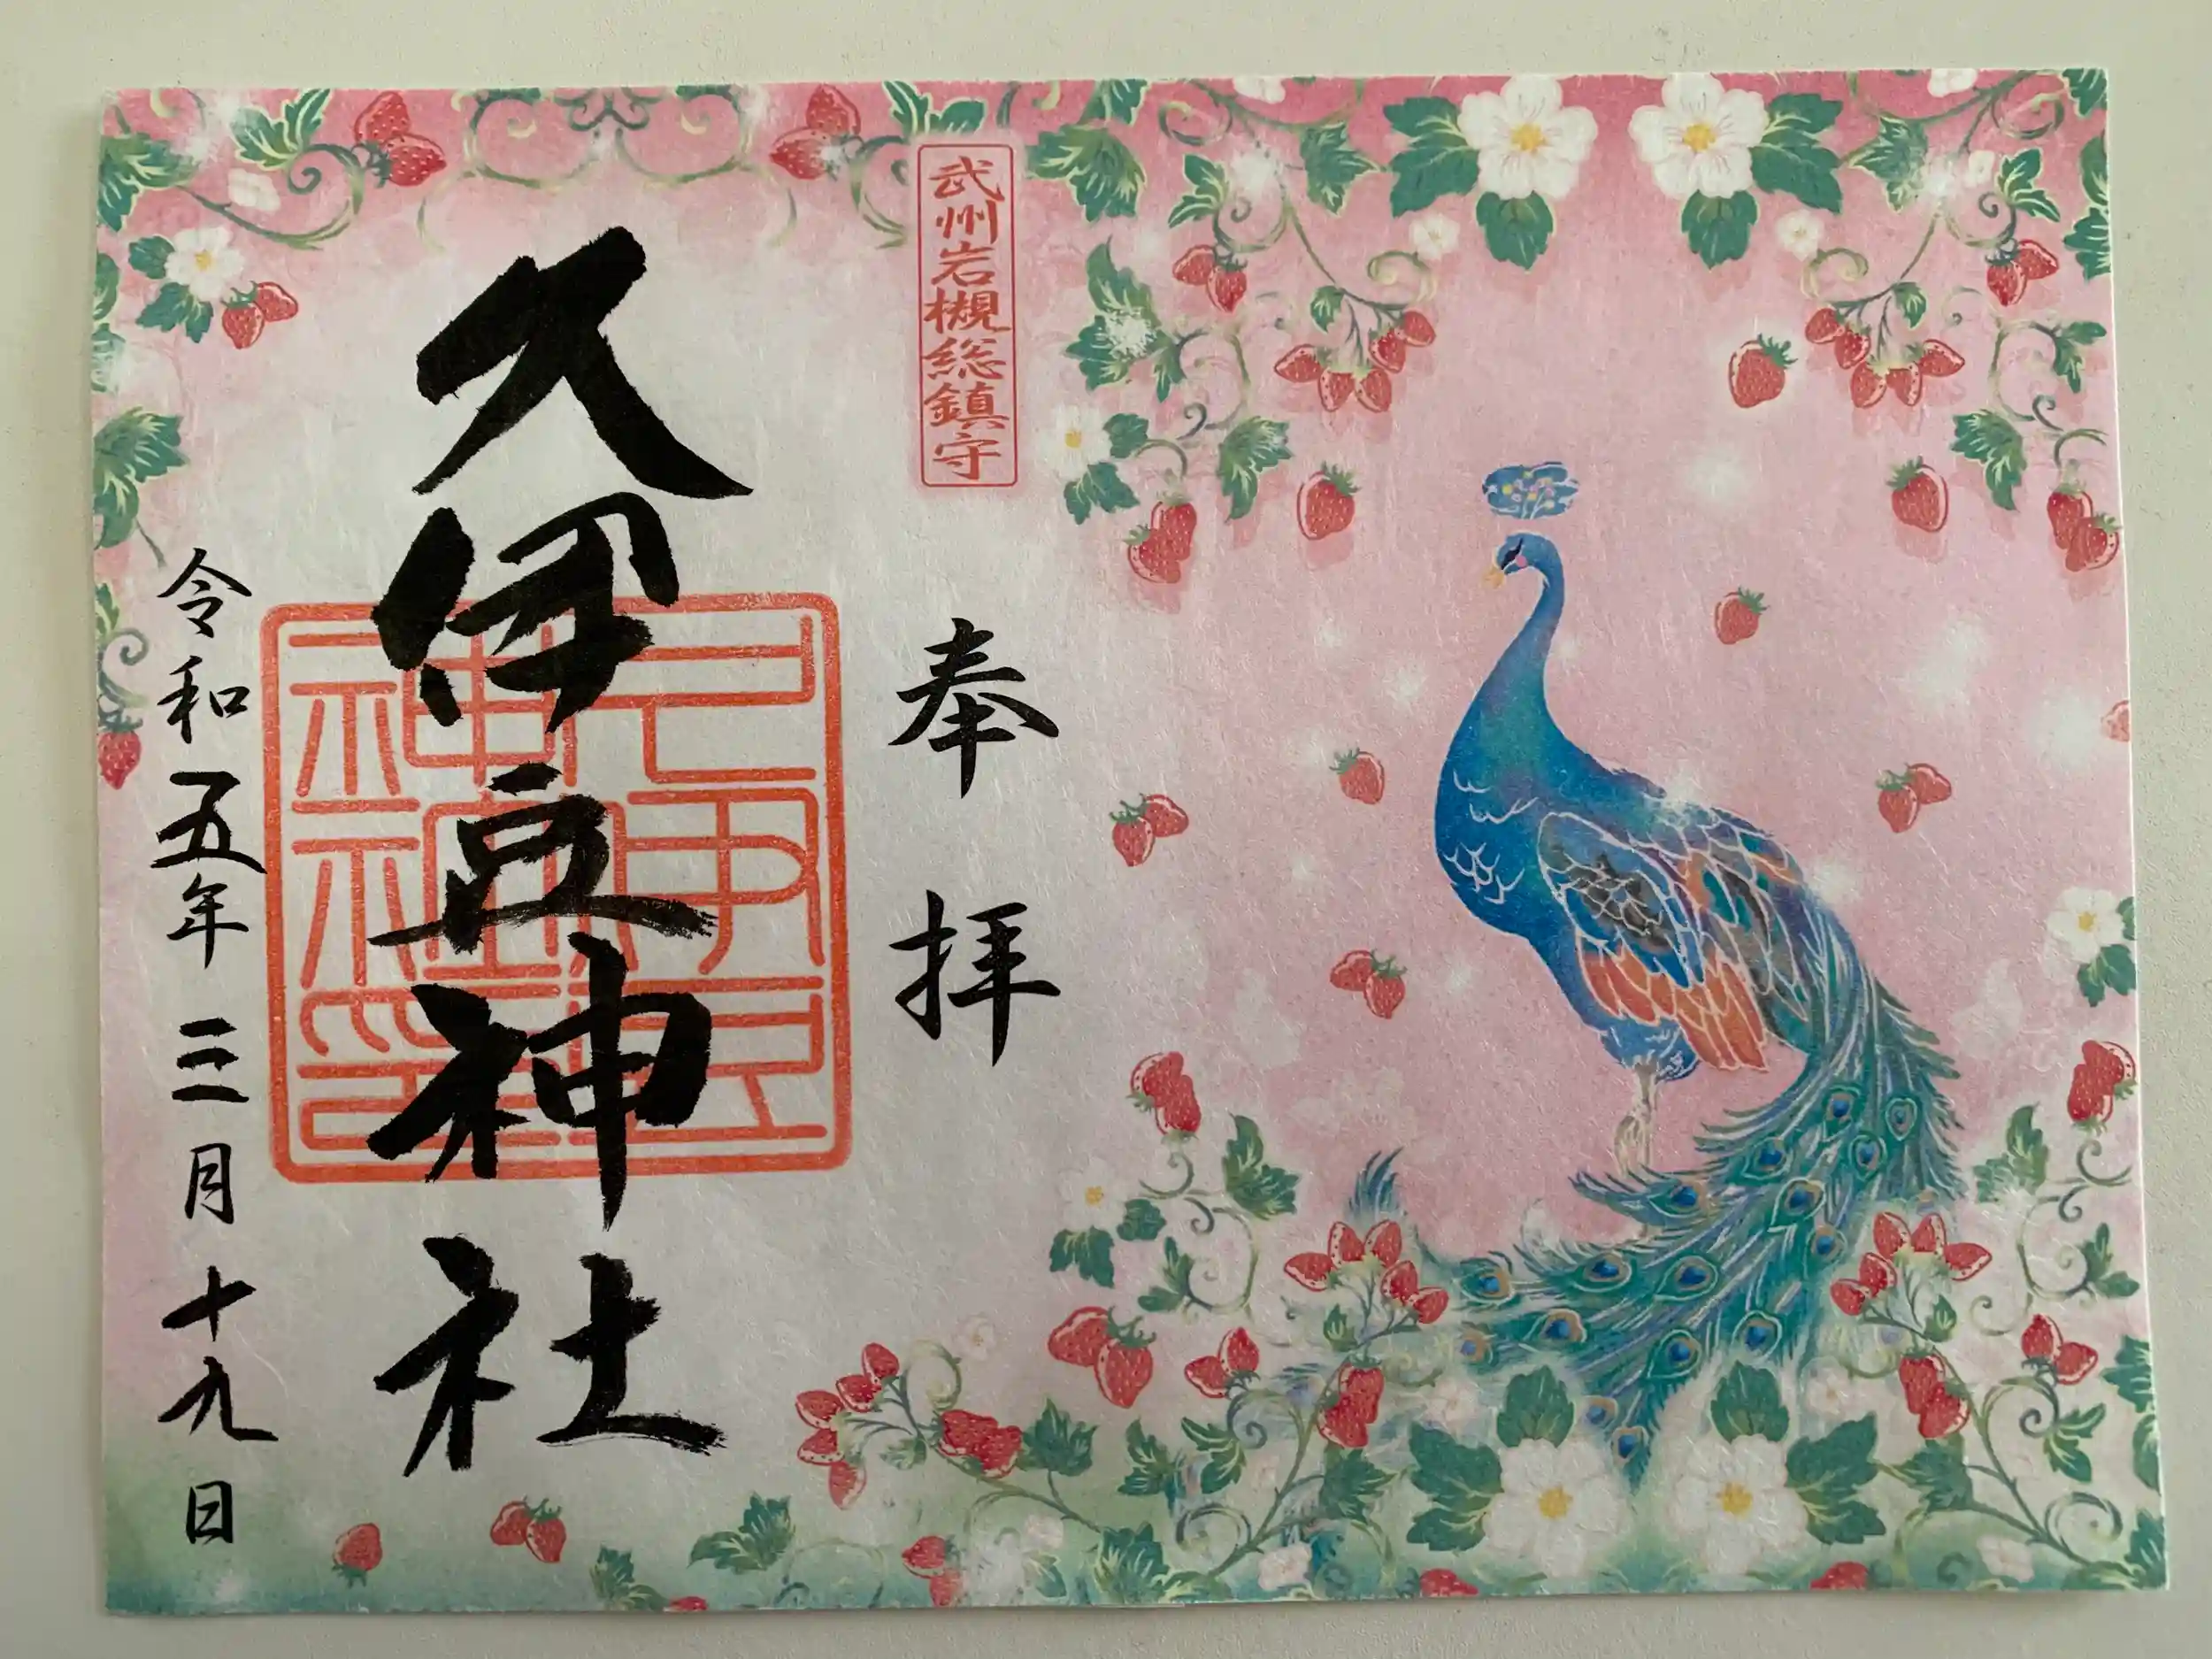 武州岩槻総鎮守
奉拝
久伊豆神社
久伊豆神社印
令和五年三月十九日